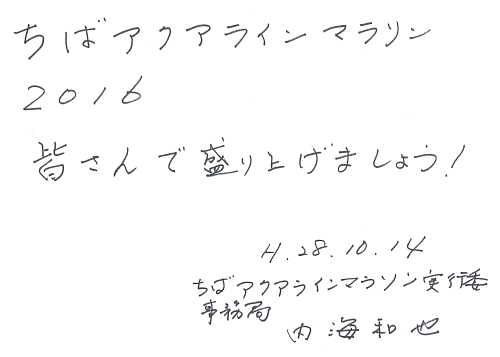 ちばアクアラインマラソン
2016
皆さんで盛り上げましょう!
H.28.10.14
ちばアクアラインマラソン実行委
事務局
内海和也